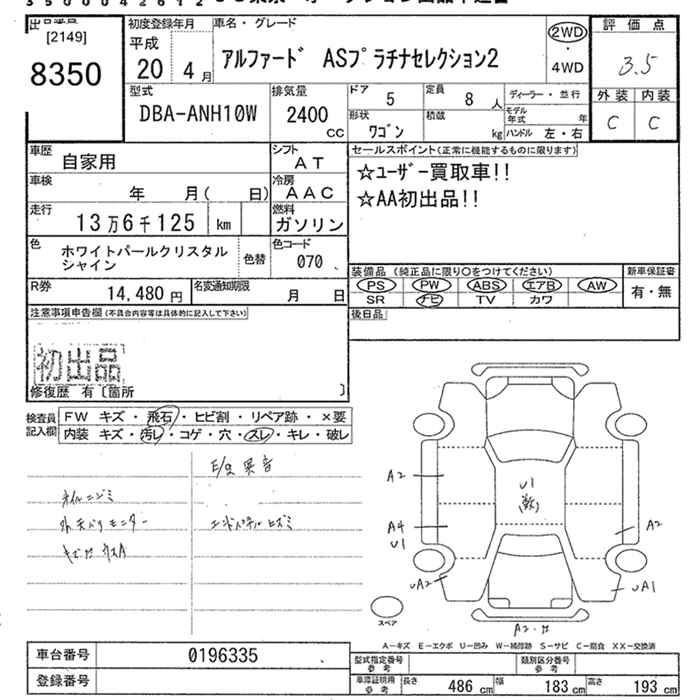 3500042612
[2149]
8350
初度登録年月
平成
20 4月
車名・グレード
アルファード ASプラチナセレクション2
2WD
・
4WD
評価点
3.5
外装 内装
C C
型式
DBA-ANH10W
排気量
2400
cc
ドア 5
定員 8人
形状 ワゴン
積載 kg
ディーラー・並行
モデル年式 年
ハンドル 左・右
車歴 自家用
シフト AT
車検 年 月( 日)
冷房 AAC
走行 13万6千125 km
燃料 ガソリン
色 ホワイトパールクリスタルシャイン
色替
色コード 070
R券 14,480円
名変通知期限 月 日
セールスポイント(正常に機能するものに限ります)
☆ユーザー買取車!!
☆AA初出品!!
装備品 (純正品に限り○をつけてください)
PS PW ABS エアB AW
SR ナビ TV カワ
新車保証書
有・無
後日品
注意事項申告欄(不具合内容等は具体的に記入して下さい)
初出品
修復歴 有〔箇所 〕
検査員記入欄
FW キズ・飛石・ヒビ割・リペア跡・×要
内装 キズ・汚レ・コゲ・穴・スレ・キレ・破レ
E/G異音
オイルニジミ
外天バリモニター
エンドパネルヒズミ
A2
A4
U1
U1
A2
UA2
UA1
スペア
A-キズ E-エクボ U-凹み W-補修跡 S-サビ C-腐食 XX-交換済
車台番号 0196335
登録番号
型式指定番号参考
類別区分番号参考
車庫証明用参考
長さ 486cm
幅 183cm
高さ 193cm